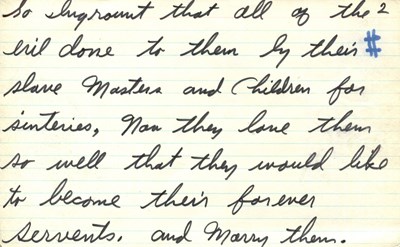 So Ingrount that all of the 2
evil done to them by their #
slave Masters and Children for
sinteries, Now they love them
so well that they would like
to become their forever
servents. and Marry them.